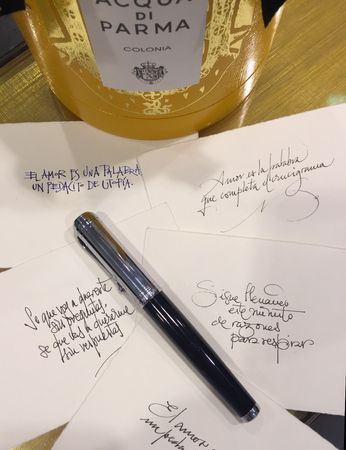 ACQUA
DI
PARMA
COLONIA
EL AMOR ES UNA PALABRA
UN PEDACITO DE UTOPIA.
Amor es la palabra
que completa el crucigrama
Se que voy a quererte
sin preguntas,
se que vas a quererme
sin respuestas
Sigue llenando
este minuto
de razones
para respirar
El amor
un peda